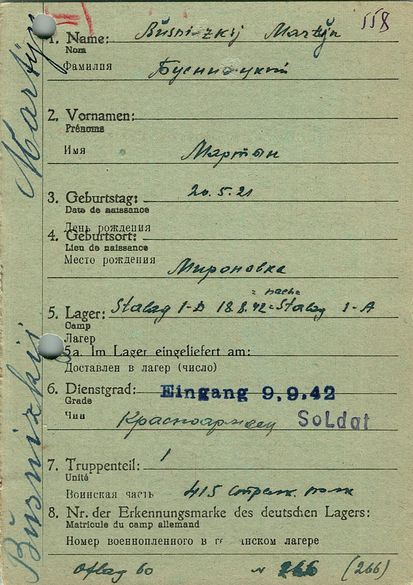 558
1. Name: Büsnizkij Martyn
Nom
Фамилия Бусницкий
2. Vornamen:
Prénoms
Имя Мартын
3. Geburtstag: 20.5.21
Date de naissance
День рождения
4. Geburtsort:
Lieu de naissance
Место рождения Мироновка
= nach =
5. Lager: Stalag I-D 18.8.42 Stalag I-A
Camp
Лагерь
5a. Im Lager eingeliefert am:
Доставлен в лагерь (число)
6. Dienstgrad: Eingang 9.9.42
Grade
Чин Красноармеец Soldat
7. Truppenteil:
Unité
Воинская часть 415 стрелк. полк
8. Nr. der Erkennungsmarke des deutschen Lagers:
Matricule du camp allemand
Номер военнопленного в германском лагере
Oflag 60 N 266 (266)
Büsnizkij Martyn